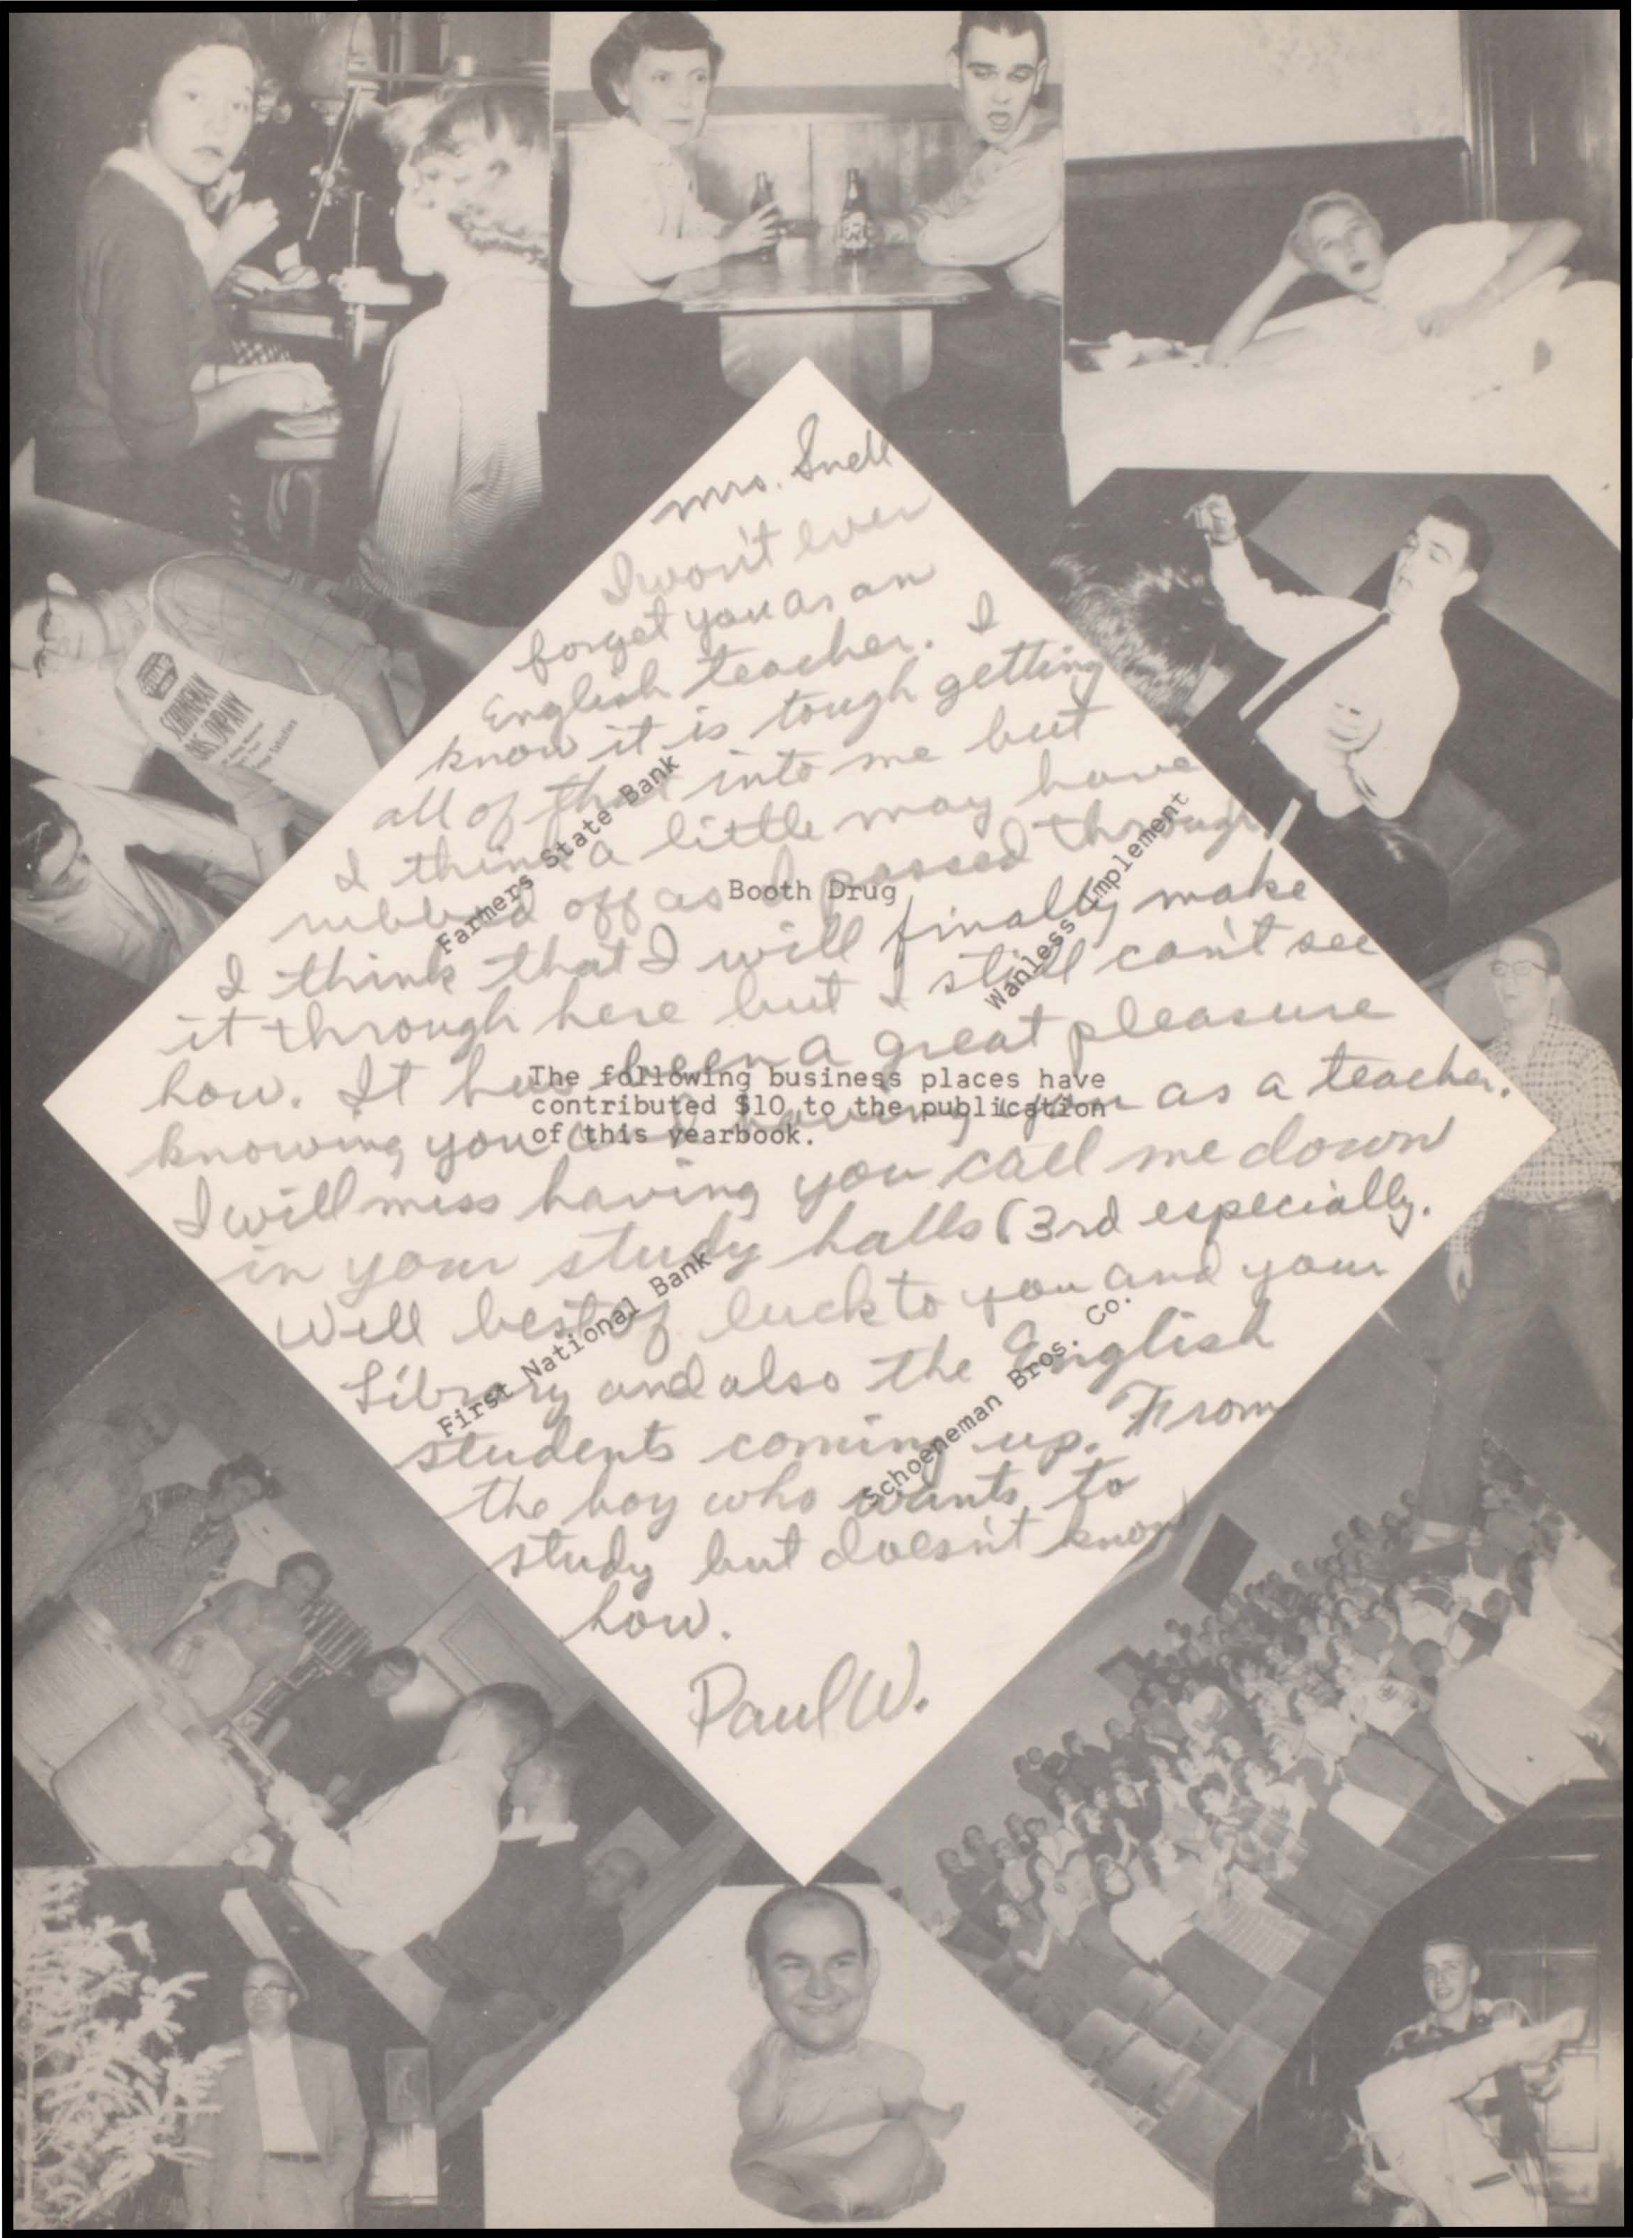 Mrs. Snell
I won't ever
forget you as an
English teacher. I
know it is tough getting
all of that into me but
I think a little may have
rubbed off as I passed through
I think that I will finally make
it through here but I still can't see
how. It has been a great pleasure
knowing you and having you as a teacher.
I will miss having you call me down
in your study halls (3rd especially.
Well best of luck to you and your
Library and also the English
students coming up. From
the boy who wants to
study but doesn't know
how.
Paul W.
Farmers State Bank
Booth Drug
Wanless Implement
The following business places have
contributed $10 to the publication
of this yearbook.
First National Bank
Schoeneman Bros. Co.
SCHOENEMAN
BROS. COMPANY